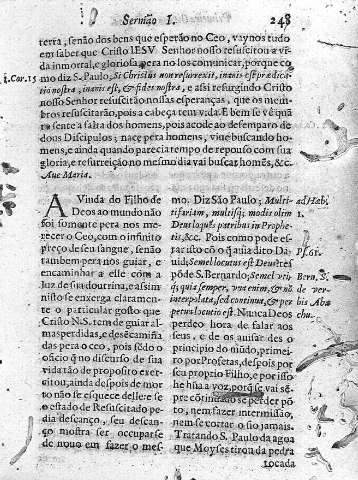 Sermão I. 248
terra, senão dos bens que esperão no Ceo, vay nos tudo
em saber que Cristo IESV Senhor nosso resuscitou a vi-
da inmortal, e gloriosa pera no los comunicar, porque co
1.Cor.15 mo diz S. Paulo, Si Christus non resurrexit, inanis est prædica-
tio nostra, inanis est, & fides nostra, e assi resurgindo Cristo
nosso Senhor resuscitão nossas esperanças, que os mem-
bros resuscitarão, pois a cabeça tem vida. E bem se vè qua
ra sente a falta dos homens, pois acode ao desemparo de
dous Discipulos; nace pera homens, vive buscando ho-
mens, e ainda quando parecia tempo de repouso com sua
gloria, e resurreição no mesmo dia vai buscar homẽs, &c.
Aue Maria.
A Vinda do Filho de
Deos ao mundo não
foi somente pera nos me-
recer o Ceo, com o infinito
preço de seu sangue, senão
tambem pera nos guiar, e
encaminhar a elle com a
luz de sua doutrina, e assim
to se enxerga claramen-
te o particular gosto que
Cristo N.S. tem de guiar al-
mas perdidas, e desẽcaminha
das pera o ceo, pois sẽdo o
officio q̃ no discurso de sua
vida tão de proposito exer-
citou, ainda despois de mor-
to não se esquece delle e se
o estado de Resuscitado pe-
dia descanço, seu descan-
ço mostra ser occuparse
de nouo em fazer o mes-
mo. Diz São Paulo; Multi- ad Hæb.
fariam, multisq; modis olim 1.
Deus loquẽs patribus in Prophe-
tis, &c. Pois como pode es-
tar isto cõ o q̃ auia dito Da- Psor.
uid; Semel locutus est Deus: res
põde S. Bernardo; Semel uti- Bern.
q; quia semper, vna enim, & nõ de ver-
interpolata, sed continua, & per bis Aba
petua locutio est. Nunca Deos chu.
perdeo hora de falar aos
seus, e de os auisar des o
principio do mũdo, primei-
ro por Profetas, despois por
seu proprio Filho, e por isso
he hũa a voz, porq̃ se vai sẽ-
pre cõtinuãdo se perder põ
to, nem fazer intermissão,
nem se cortar o fio jamais.
Tratando S. Paulo da agoa
que Moyses tirou da pedra
tocada